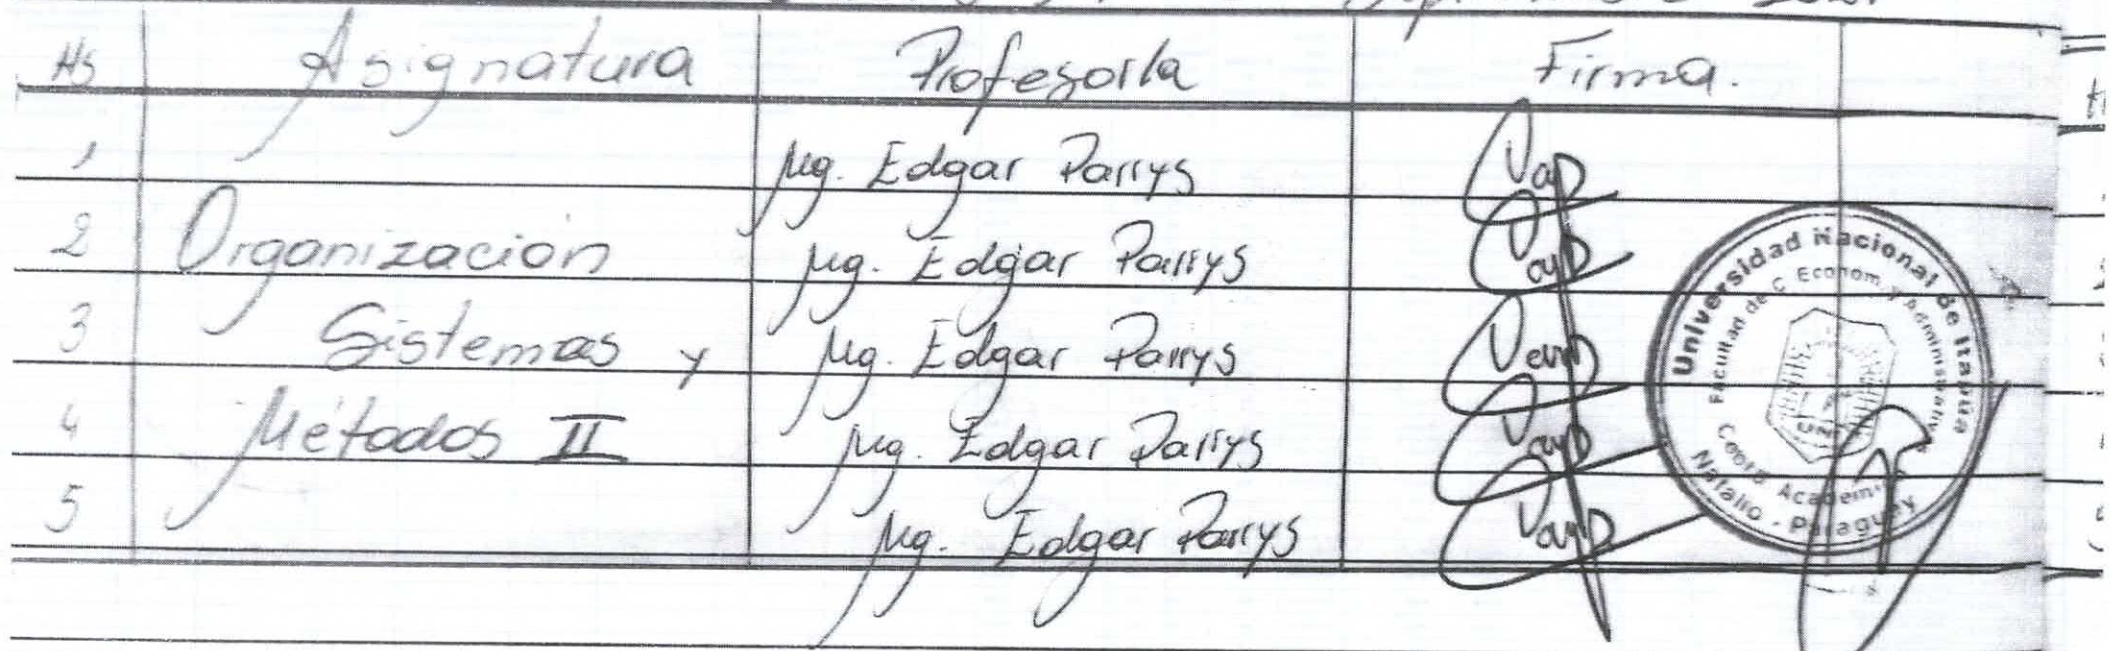 Hs Asignatura Profesor/a Firma.
1 Mg. Edgar Parrys
2 Organización Mg. Edgar Parrys
3 Sistemas y Mg. Edgar Parrys
4 Métodos II Mg. Edgar Parrys
5 Mg. Edgar Parrys
Universidad Nacional de Itapúa
Facultad de C. Econom. y Administrativas
Natalio - Paraguay